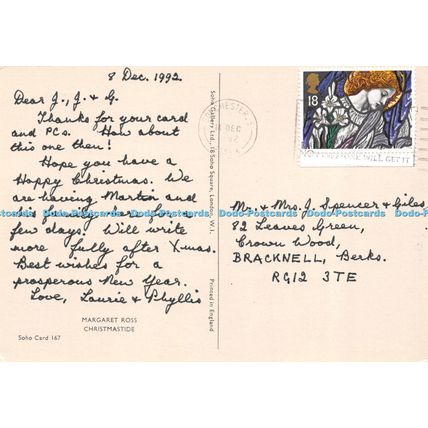 8 Dec. 1992.
Dear J., J. & G.
Thanks for your card
and PCs. How about
this one then!
Hope you have a
Happy Christmas. We
are having Martin and
few days! Will write
more fully after Xmas.
Best wishes for a
prosperous New Year.
Love, Laurie & Phyllis
MARGARET ROSS
CHRISTMASTIDE
Soho Card 167
Soho Gallery Ltd., 18 Soho Square, London, W.1.
Printed in England
18
DEC
WILL GET IT
Mr. & Mrs. J. Spencer & Giles,
82 Leaves Green,
Crown Wood,
BRACKNELL, Berks.
RG12 3TE
Dodo-Postcards Dodo-Postcards Dodo-Postcards Dodo-Postcards